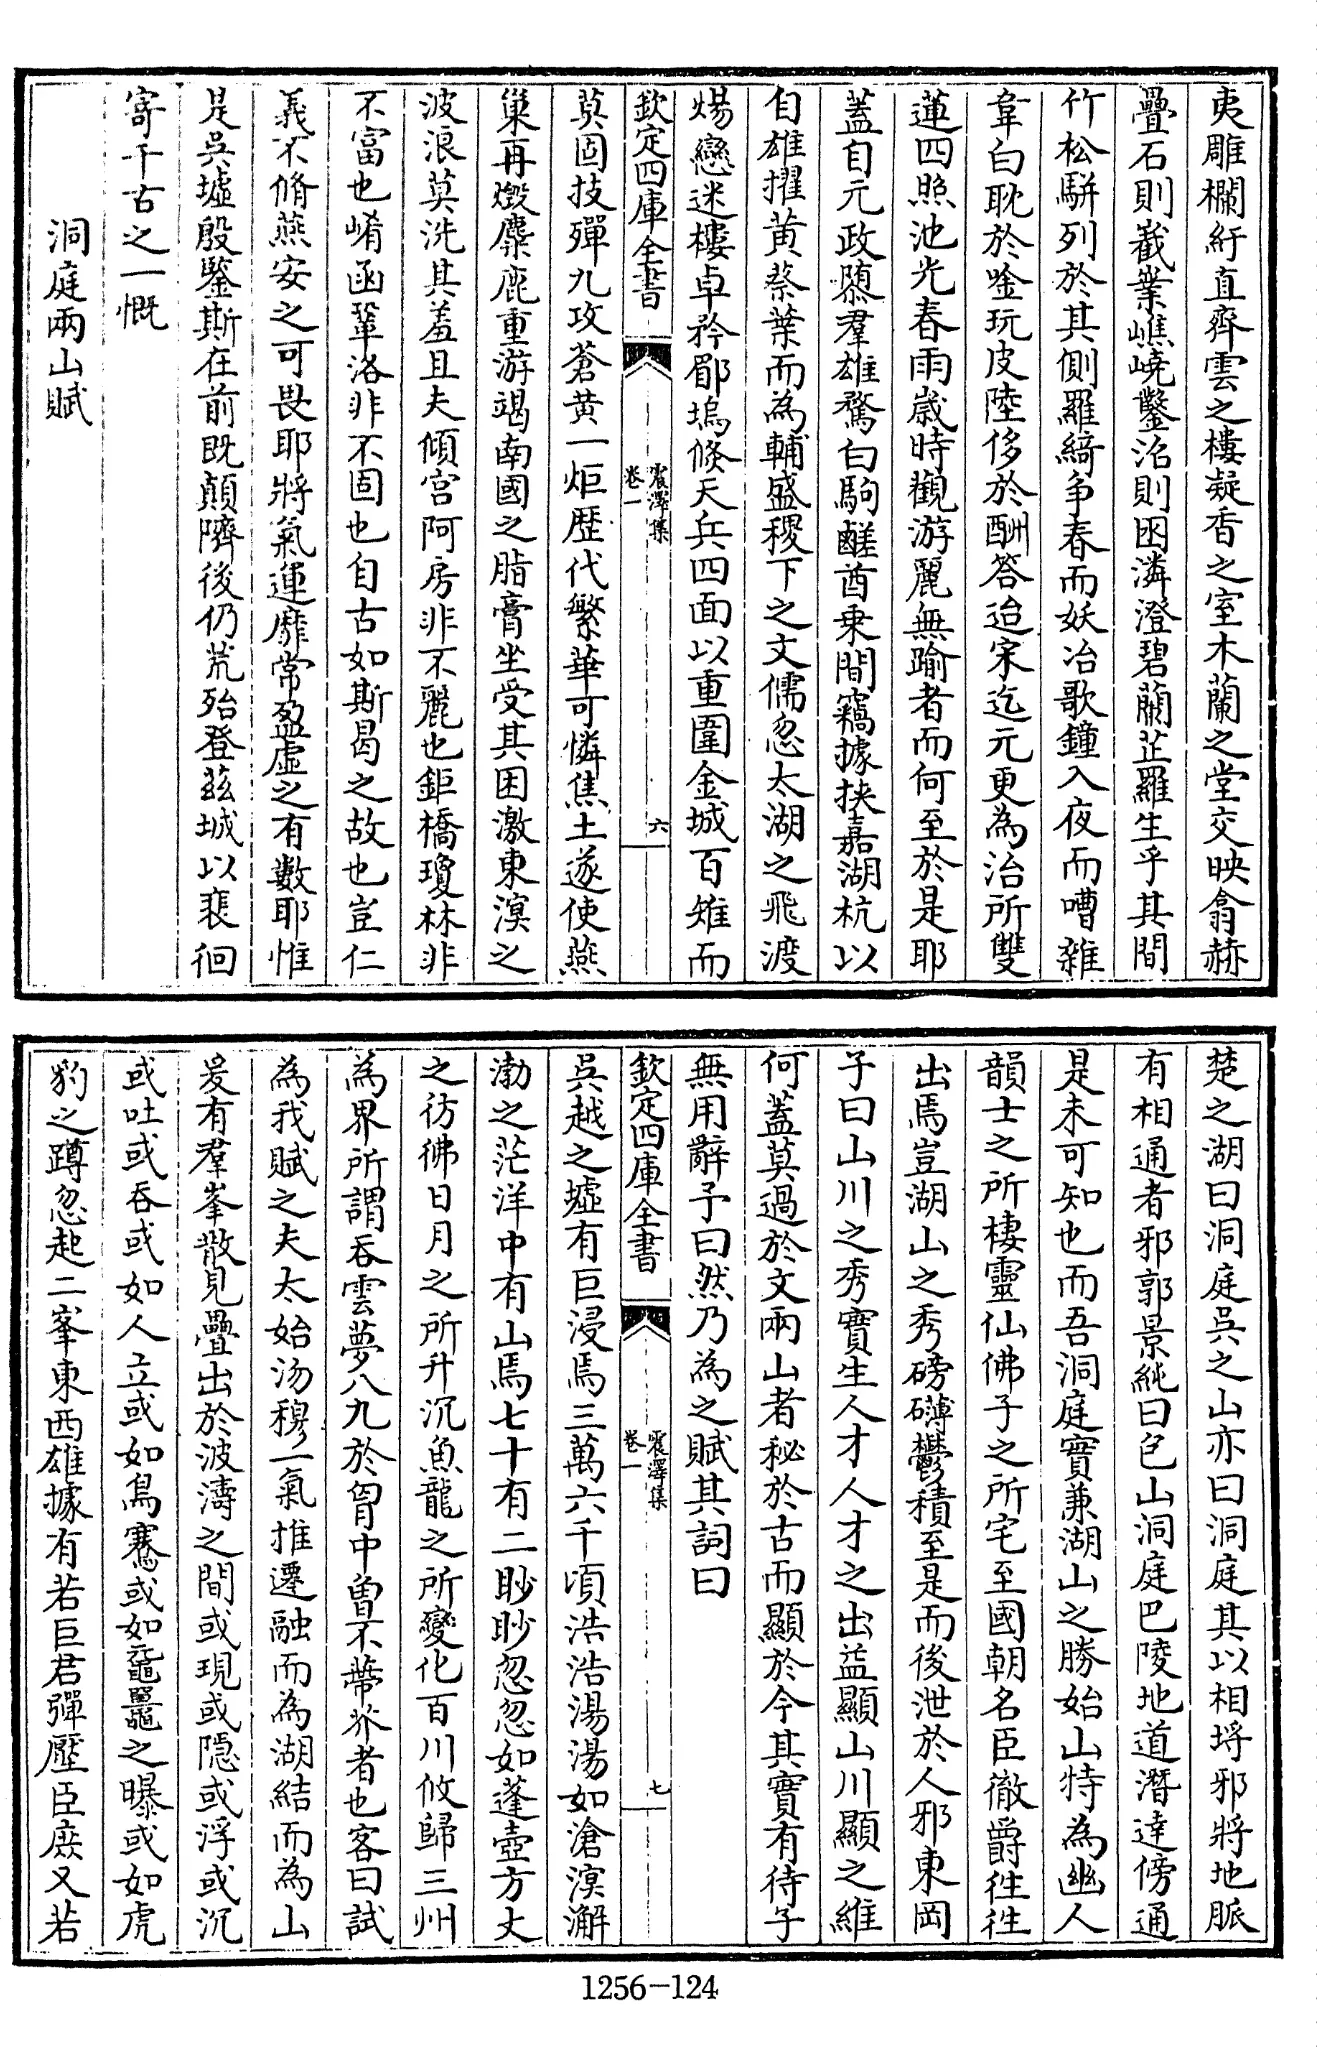 夷雕欄紆直齊雲之樓凝香之室木蘭之堂交映翕赫
疊石則嶻嶪嶕嶢鑿沼則困潾澄碧蘭芷羅生乎其間
竹松駢列於其側羅綺争春而妖冶歌鐘入夜而嘈雜
韋白耽於唫玩皮陸侈於酬答迨宋迄元更為治所雙
蓮四照池光春雨歲時觀游麗無踰者而何至於是耶
蓋自元政隳羣雄騖白駒鹺酋乗間竊據挾嘉湖杭以
自雄擢黄蔡葉而為輔盛稷下之文儒忽太湖之飛渡
煬戀迷樓卓矜郿塢倐天兵四面以重圍金城百雉而
欽定四庫全書
震澤集
卷一
六
莫固技殫九攻蒼黄一炬歴代繁華可憐焦土遂使燕
巢再燬麋鹿重游竭南國之脂膏坐受其困激東溟之
波浪莫洗其羞且夫傾宫阿房非不麗也鉅橋瓊林非
不富也崤函鞏洛非不固也自古如斯曷之故也豈仁
義不脩燕安之可畏耶將氣運靡常盈虚之有數耶惟
是吳墟殷鑒斯在前既顛隮後仍荒殆登兹城以裴徊
寄千古之一慨
洞庭兩山賦
楚之湖曰洞庭吳之山亦曰洞庭其以相埒邪將地脈
有相通者邪郭景純曰包山洞庭巴陵地道潛達傍通
是未可知也而吾洞庭實兼湖山之勝始山特為幽人
韻士之所棲靈仙佛子之所宅至國朝名臣徹爵徃徃
出焉豈湖山之秀磅礴鬱積至是而後泄於人邪東岡
子曰山川之秀實生人才人才之出益顯山川顯之維
何蓋莫過於文兩山者秘於古而顯於今其實有待子
無用辭予曰然乃為之賦其詞曰
欽定四庫全書
震澤集
卷一
七
吳越之墟有巨浸焉三萬六千頃浩浩湯湯如滄溟澥
渤之茫洋中有山焉七十有二眇眇忽忽如蓬壺方丈
之彷彿日月之所升沉魚龍之所變化百川攸歸三州
為界所謂吞雲夢八九於胷中曾不蔕芥者也客曰試
為我賦之夫太始沕穆一氣推遷融而為湖結而為山
爰有羣峯散見疊出於波濤之間或現或隠或浮或沉
或吐或吞或如人立或如鳥騫或如黿鼉之曝或如虎
豹之蹲忽起二峯東西雄據有若巨君彈壓臣庶又若
1256-124